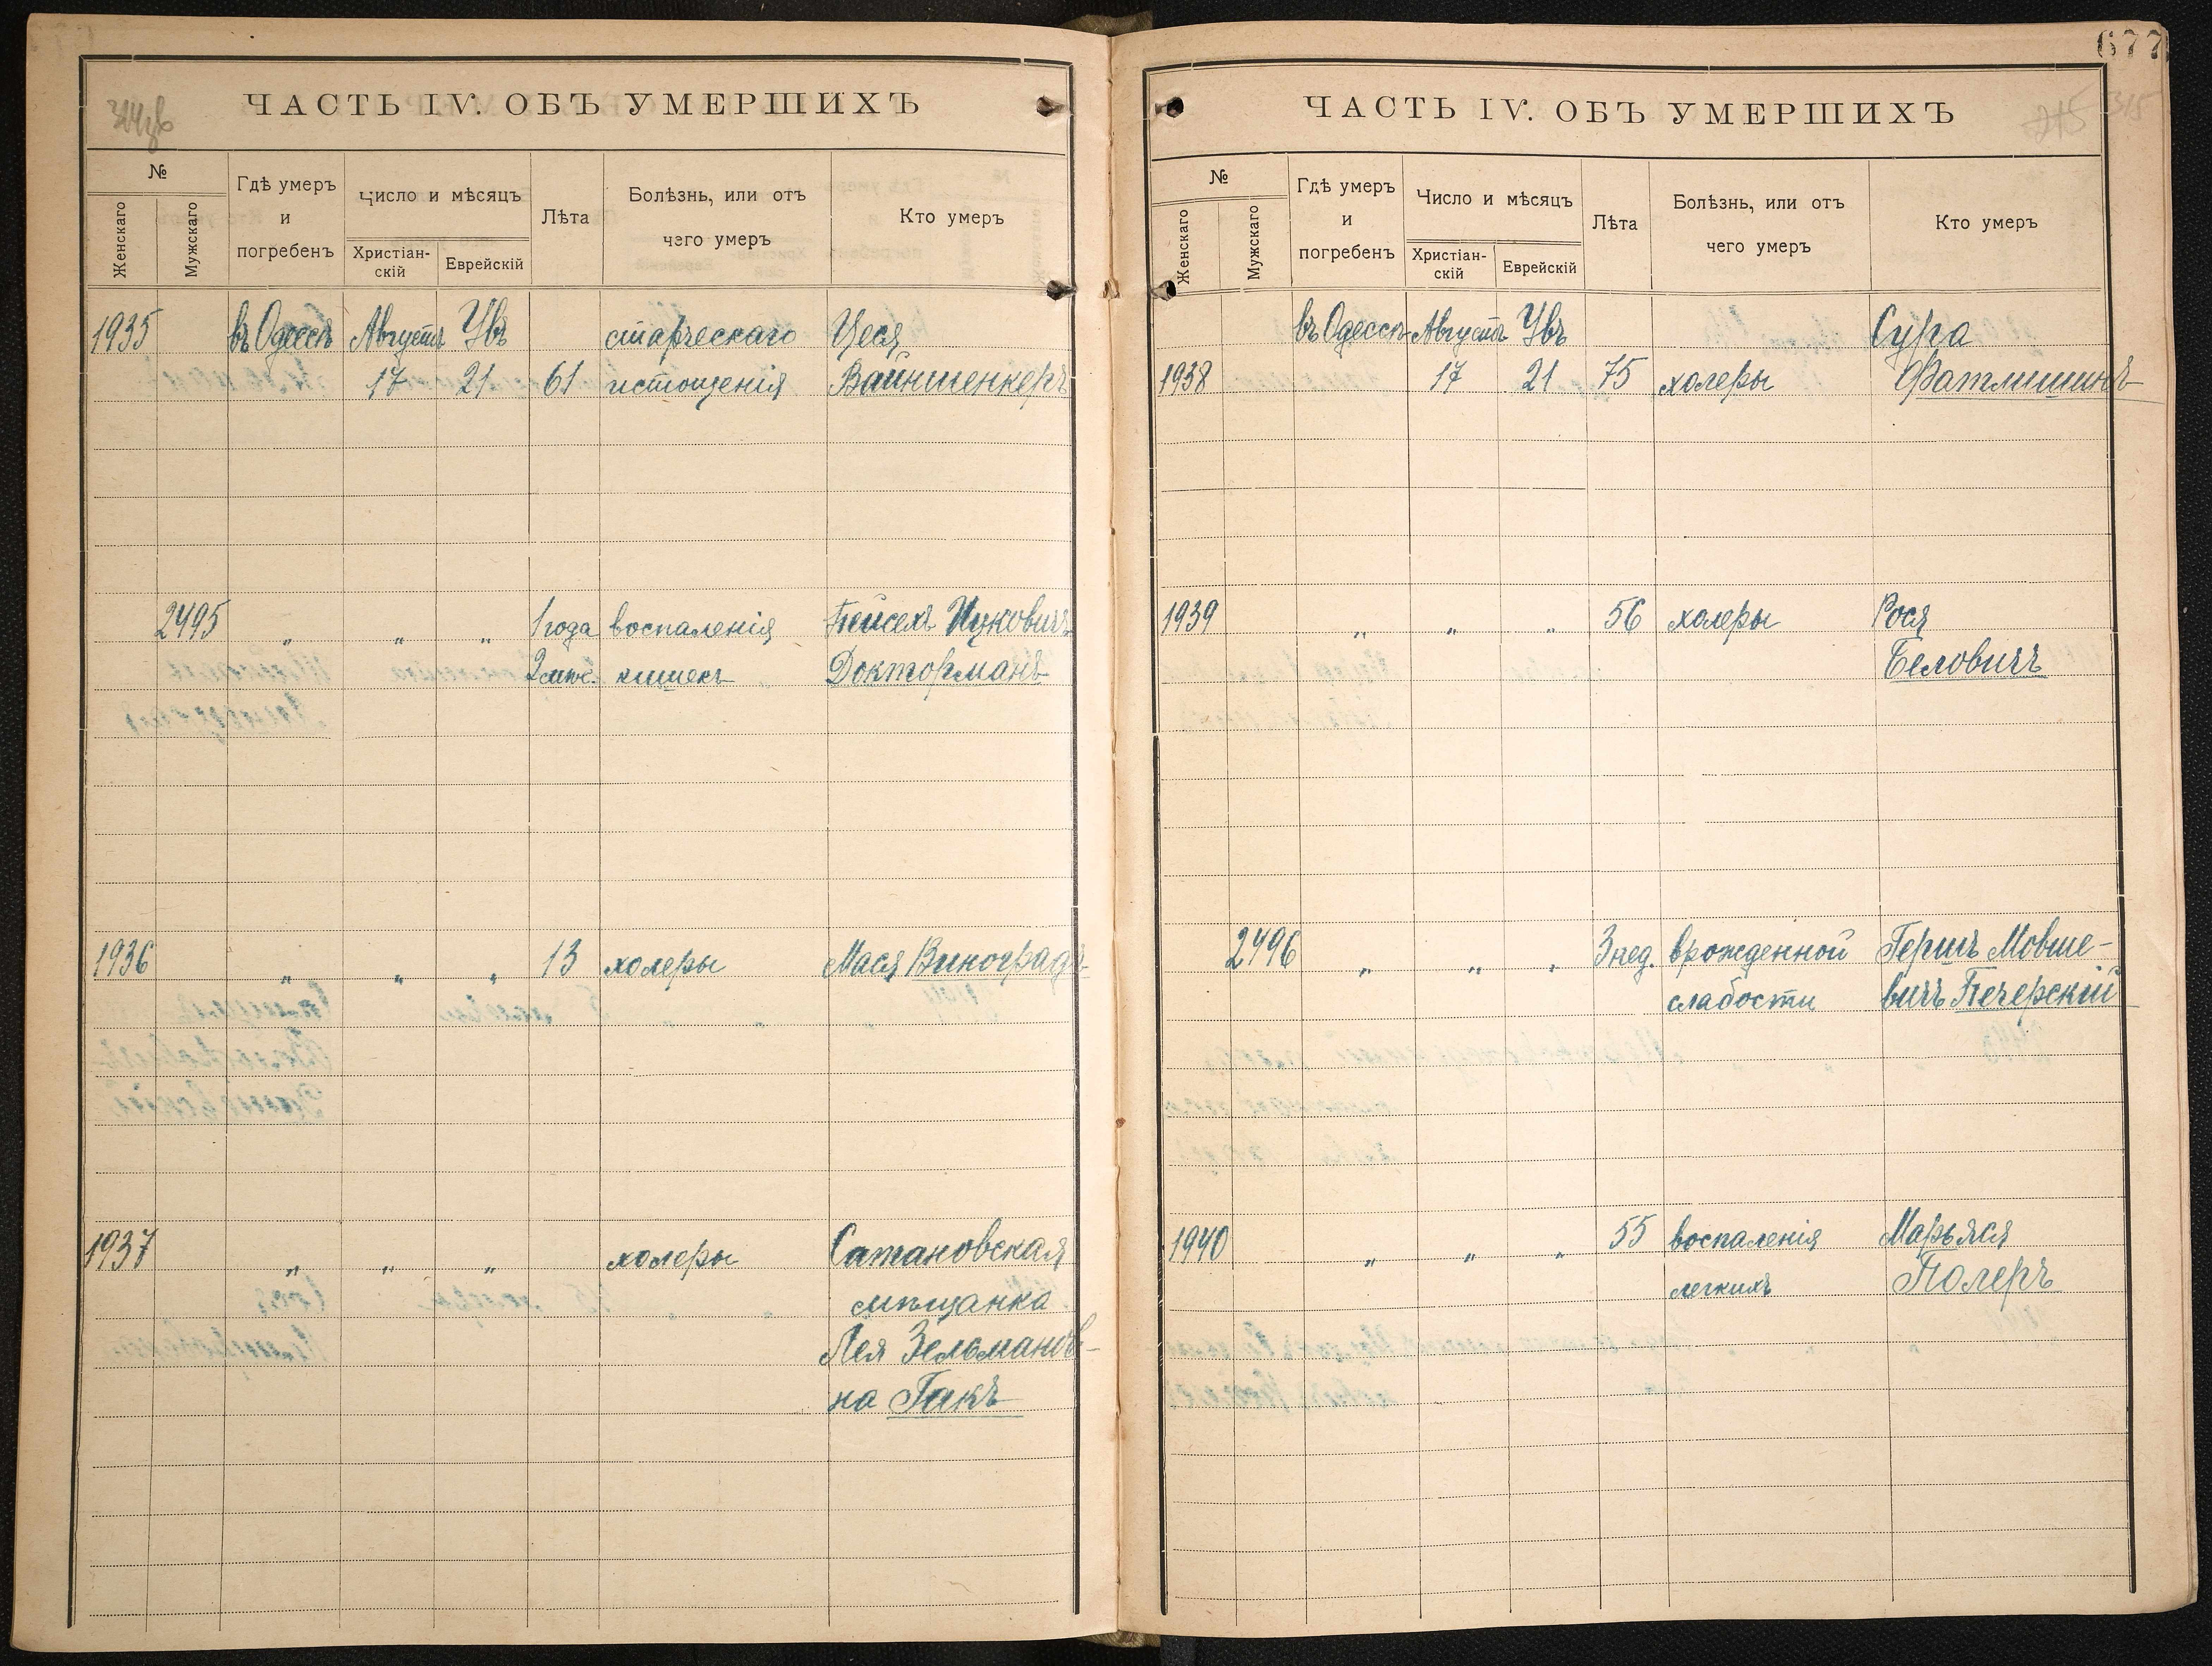 ЧАСТЬ IV. ОБЪ УМЕРШИХЪ
№
Женскаго
Мужскаго
Гдѣ умеръ
и
погребенъ
Число и мѣсяцъ
Христіан-
скій
Еврейскій
Лѣта
Болѣзнь, или отъ
чего умеръ
Кто умеръ
1935 въ Одессѣ Августа Увъ старческаго Цеся
17 21 61 истощенія Вайншенкеръ
2495 „ „ „ 1 года воспаленія Пейсехъ Ицковичъ
2 мѣс. кишекъ Докторманъ
1936 „ „ „ 13 холеры Мася Виноградъ
1937 „ „ „ холеры Сатановская
мѣщанка
Лея Зельманов-
на Гакъ
677
ЧАСТЬ IV. ОБЪ УМЕРШИХЪ
315
№
Женскаго
Мужскаго
Гдѣ умеръ
и
погребенъ
Число и мѣсяцъ
Христіан-
скій
Еврейскій
Лѣта
Болѣзнь, или отъ
чего умеръ
Кто умеръ
въ Одессѣ Августа Увъ Сура
1938 17 21 75 холеры Фатлишинъ
1939 „ „ „ 56 холеры Рося
Беловичъ
2496 „ „ „ 3 нед. врожденной Гершъ Мовше-
слабости вичъ Печерскій
1940 „ „ „ 55 воспаленія Марьяся
легкихъ Полеръ